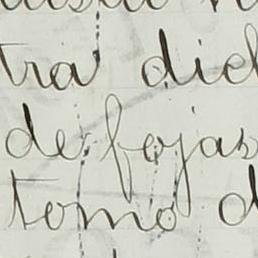 tra dich
de fojas
tomo d